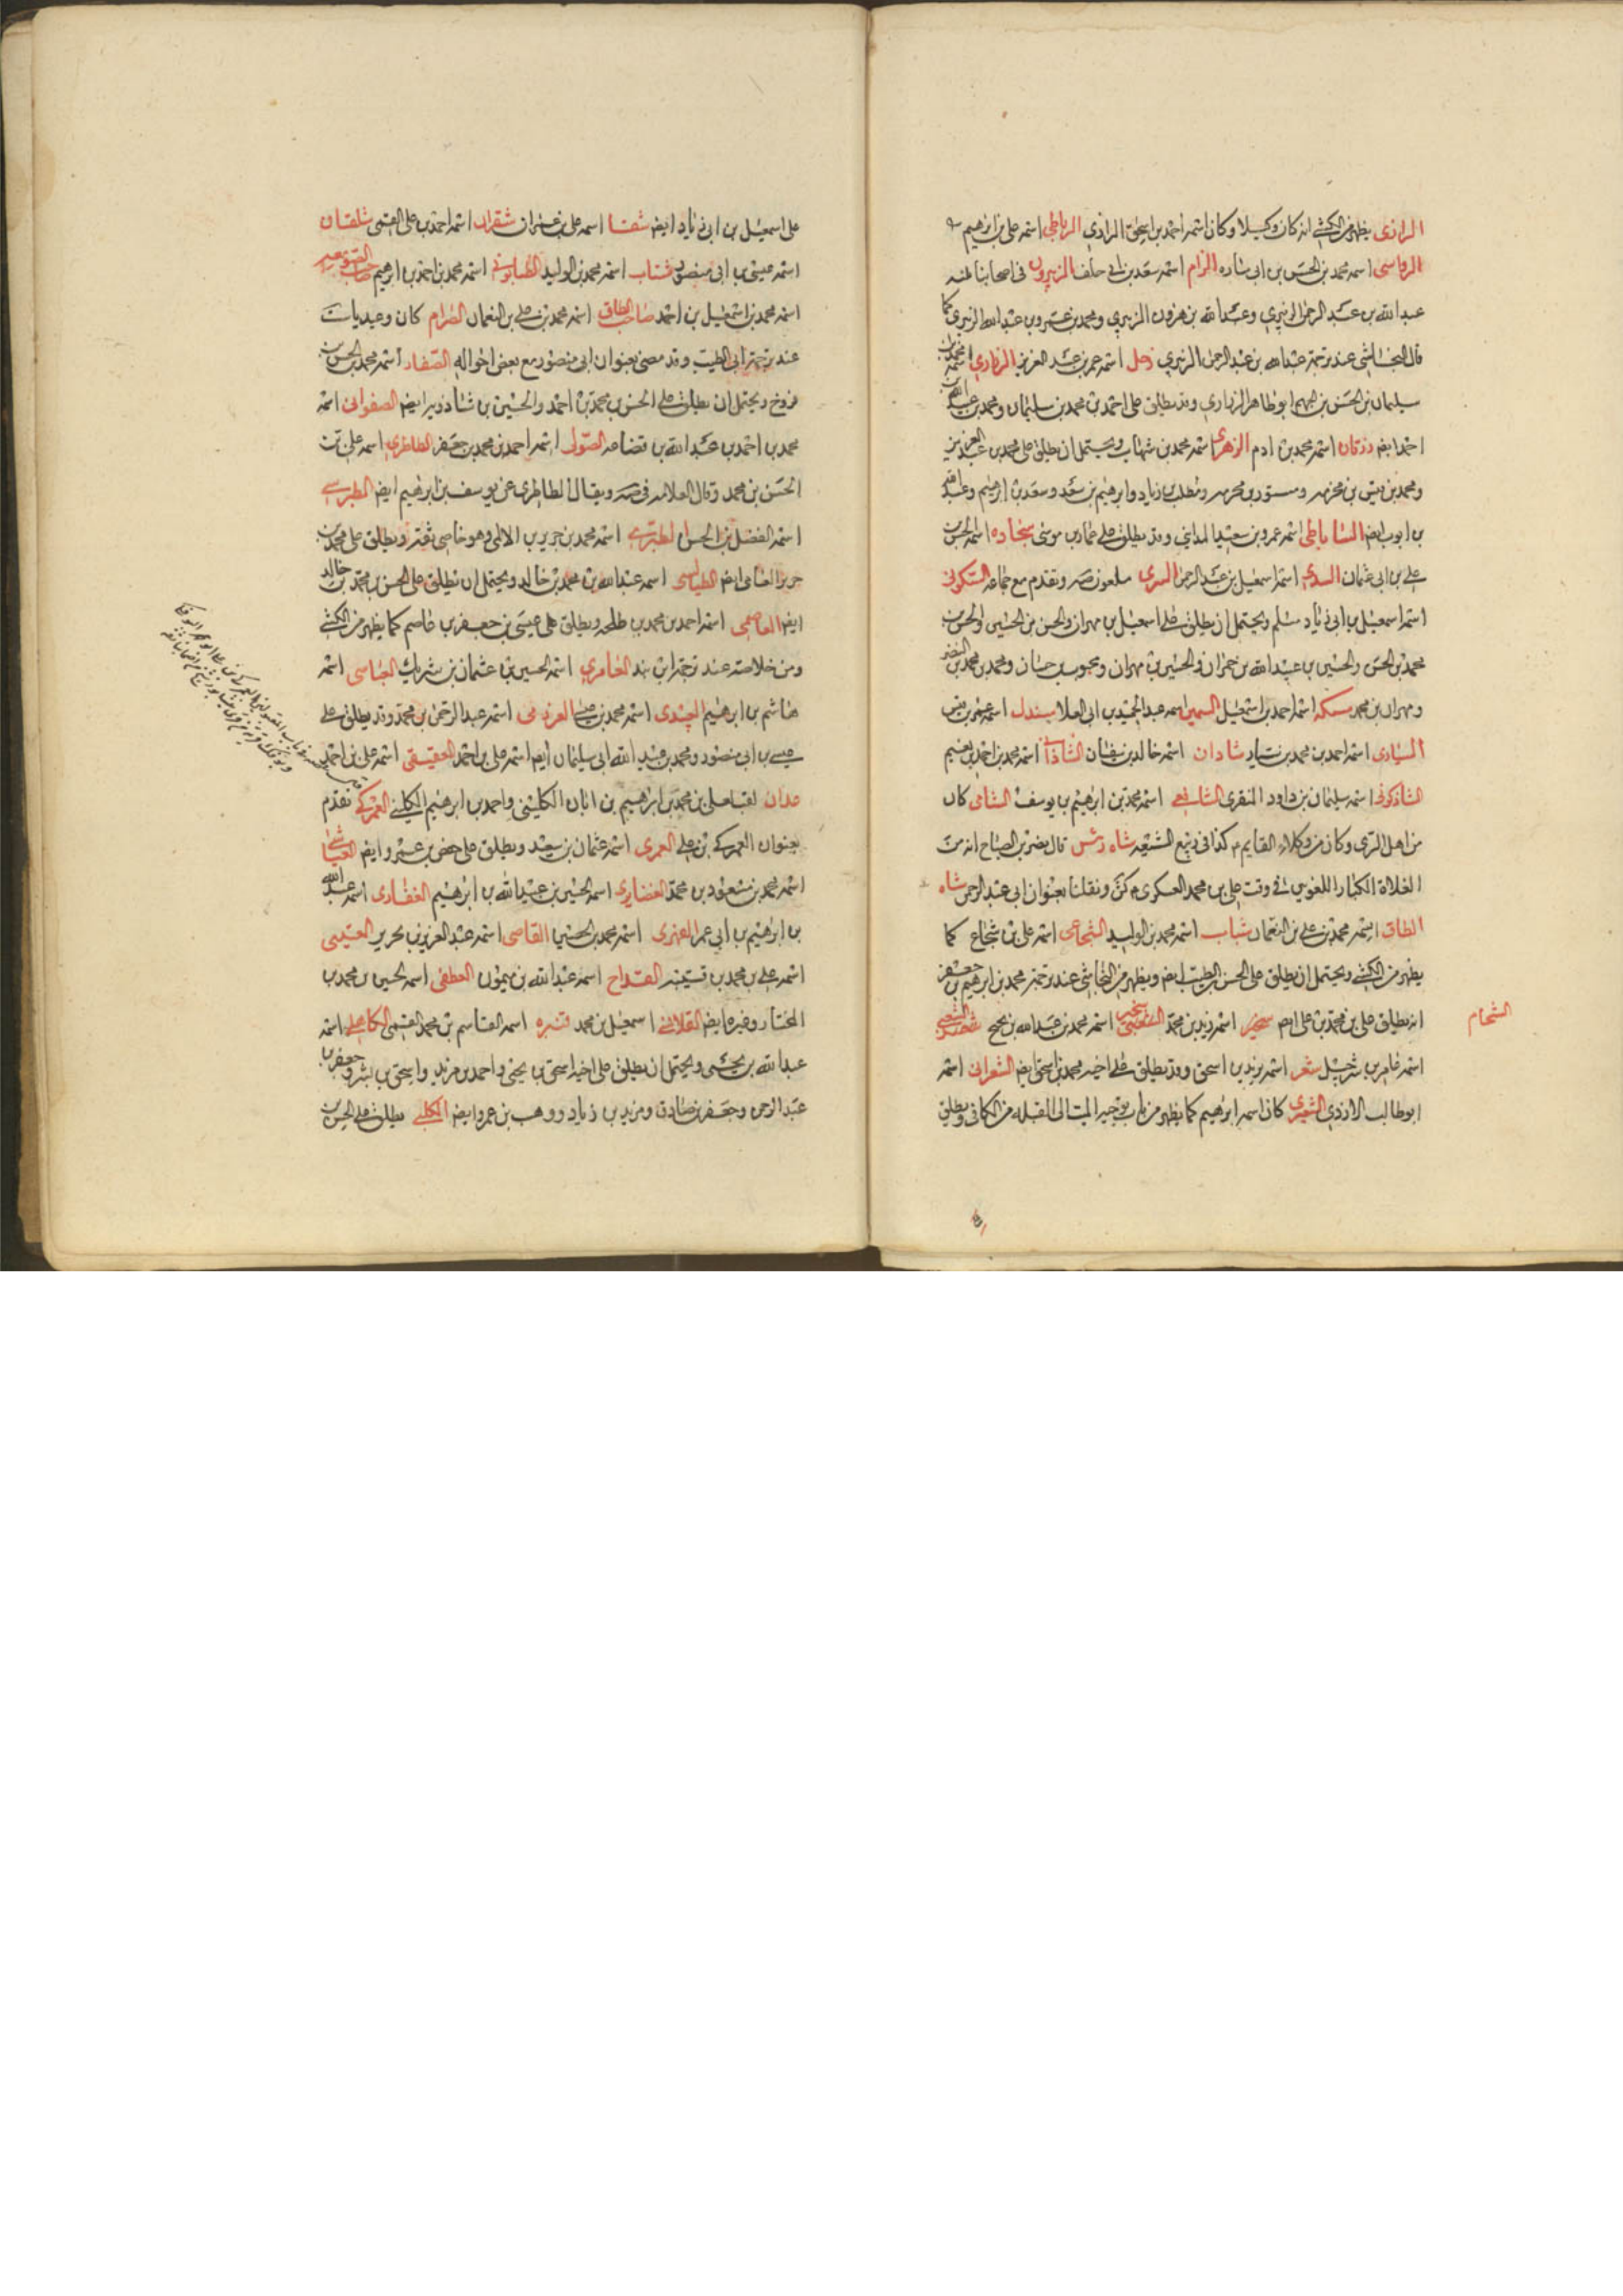 الرازى يظهر من الكشى انه كان وكيلا وكان اسمه احمد بن اسحق الرازي الرباطى اسمه على بن ابرهيم
الرواسى اسمه محمد بن الحسن بن ابى ساره الزام اسمه سعد بن ابى خلف الزبيرون فى اصحابنا ثلثه
عبد الله بن عبد الرحمن الزبيري وعبد الله بن هرون الزبيري ومحمد بن عمرو بن عبد الله الزبيري كما
قال النجاشى عند ترجمة عبد الله بن عبد الرحمن الزبيري زحل اسمه عمر بن عبد العزيز الزرارى اسمه محمد بن
سليمان بن الحسن بن الجهم ابو طاهر الزراري وقد يطلق على احمد بن محمد بن سليمان ومحمد بن عبد الله بن
احمد ايض زرقان اسمه محمد بن ادم الزهرى اسمه محمد بن شهاب ويحتمل ان يطلق على محمد بن عبد العزيز
ومحمد بن قيس بن مخرمه ومسور بن مخرمه ومطلب بن زياد وابرهيم بن سعد وسعد بن ابرهيم وعبد الله
بن ايوب ايض الساباطى اسمه عمرو بن سعيد المدايني وقد يطلق على عمار بن موسى سجاده اسمه الحسن بن
على بن ابى عثمان السدى اسمه اسمعيل بن عبد الرحمن السرى ملعون صه وتقدم مع جماعه السكونى
اسمه اسمعيل بن ابى زياد مسلم ويحتمل ان يطلق على اسمعيل بن مهران والحسن بن الحسين والحسن بن
محمد بن الحسن والحسين بن عبيد الله بن حمران والحسين بن مهران ومحبوب بن حسان ومحمد بن محمد بن النضر
ومهران بن محمد سمكه اسمه احمد بن اسمعيل السمين اسمه عبد الحميد بن ابى العلا سندل اسمه عمر بن قيس
السيارى اسمه احمد بن محمد بن سيار شادان اسمه خالد بن سفيان الشاذانى اسمه محمد بن احمد بن نعيم
الشاذكونى اسمه سليمان بن داود المنقرى الشافعى اسمه محمد بن ابرهيم بن يوسف الشامى كان
من اهل الرى وكان من وكلاء القايم م كذا فى ربيع الشيعه شاه رئس قال نصر بن الصباح انه من
الغلاة الكبار اللعونين فى وقت على بن محمد العسكرى م كش ونقلنا بعنوان ابى عبد الرحمن شاه
الطاق اسمه محمد بن على بن النعمان شباب اسمه محمد بن الوليد الشجاعى اسمه على بن شجاع كما
يظهر من الكشى ويحتمل ان يطلق على الحسن بن الطيب ايض ويظهر من النجاشى عند ترجمة محمد بن ابرهيم بن جعفر
انه يطلق على بن محمد بن على ايض اسمه زيد بن محمد اسمه محمد بن عبد الله بن نجيح
الشحام
اسمه عامر بن شرحبيل شعر اسمه يزيد بن اسحق وقد يطلق على اخيه محمد بن اسحق ايض الشعرانى اسمه
ابو طالب الازدي الشعيرى كان اسمه ابرهيم كما يظهر من باب توجيه الميت الى القبله من الكافى ويطلق
على اسمعيل بن ابى زياد ايض شفا اسمه على بن عمران شقران اسمه احمد بن على القمى شلقان
اسمه عيسى بن ابى منصور شنباب اسمه محمد بن الوليد الصابونى اسمه محمد بن احمد بن ابرهيم صاحب الصومعه
اسمه محمد بن اسمعيل بن احمد صاحب الطاق اسمه محمد بن على بن النعمان الصرام كان وعيديا
عند ترجمة ابى الطيب وقد مضى بعنوان ابى منصور مع بعض احواله الصفار اسمه محمد بن الحسن بن
فروخ ويحتمل ان يطلق على الحسن بن محمد بن احمد والحسين بن شاذويه ايض الصفوانى اسمه
محمد بن احمد بن عبد الله بن قضاعه الصولى اسمه احمد بن محمد بن جعفر الطاطرى اسمه على بن
الحسن بن محمد وقال العلامه فى صه ويقال الطاطرى عن يوسف بن ابرهيم ايض الطبرسى
اسمه الفضل بن الحسن الطبرى اسمه محمد بن جرير بن الاملى وهو خاصى ثقة ويطلق على محمد بن
جرير العامى ايض الطيالسى اسمه عبد الله بن محمد بن خالد ويحتمل ان يطلق على الحسن بن محمد بن خالد
ايض العاصمى اسمه احمد بن محمد بن طلحه ويطلق على عيسى بن جعفر بن عاصم كما يظهر من الكشى
ومن خلاصه عند ترجمة ابن بند العامرى اسمه الحسين بن عثمان بن شريك العباسى اسمه
هاشم بن ابرهيم العبيدى اسمه محمد بن عيسى العرزمى اسمه عبد الرحمن بن محمد وقد يطلق على
عيسى بن ابى منصور ومحمد بن عبيد الله ابى سليمان ايض اسمه على بن احمد العقيقى اسمه على بن احمد
علان لقب على بن محمد بن ابرهيم بن ابان الكلينى واحمد بن ابرهيم الكلينى العمركى تقدم
بعنوان العمركى بن على العمرى اسمه عثمان بن سعيد ويطلق على حفص بن عمرو ايض العياشى
اسمه محمد بن مسعود بن محمد الغضايرى اسمه الحسين بن عبيد الله بن ابرهيم الغفارى اسمه عبد الله
بن ابرهيم بن ابى عمر الفهرى اسمه محمد بن الحسين القاضى اسمه عبد العزيز بن تحرير القتيبى
اسمه على بن محمد بن قتيبه القداح اسمه عبد الله بن ميمون القطفى اسمه الحسين بن محمد بن
المختار وغيره ايض القلانسى اسمعيل بن محمد قنبره اسمه القاسم بن محمد القمى الكاهلى اسمه
عبد الله بن يحيى ويحتمل ان يطلق على اخيه اسحق بن يحيى واحمد بن مزيد واسحق بن بشر وجعفر بن
عبد الرحمن وجعفر بن صادق ومزيد بن زياد ووهب بن عمرو ايض الكلبى يطلق على الحسين بن